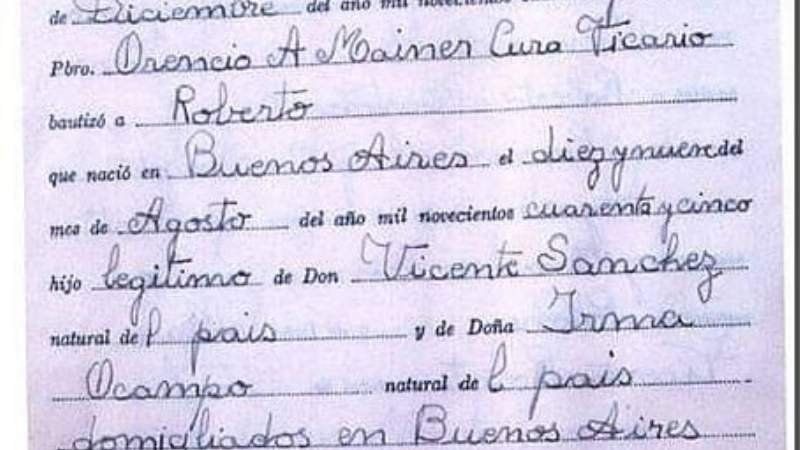 de Diciembre del año mil novecientos
Pbro. Orencio A Mainer Cura Vicario
bautizó a Roberto
que nació en Buenos Aires el diez y nueve del
mes de Agosto del año mil novecientos cuarenta y cinco
hijo legitimo de Don Vicente Sanchez
natural del pais y de Doña Irma
Ocampo natural del pais
domiciliados en Buenos Aires